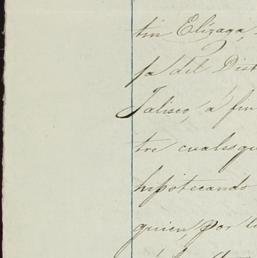 tin Elizaga,
fa del Dist
Jalisco, á fin
tre cualesqu
hipotecando
quien, por l